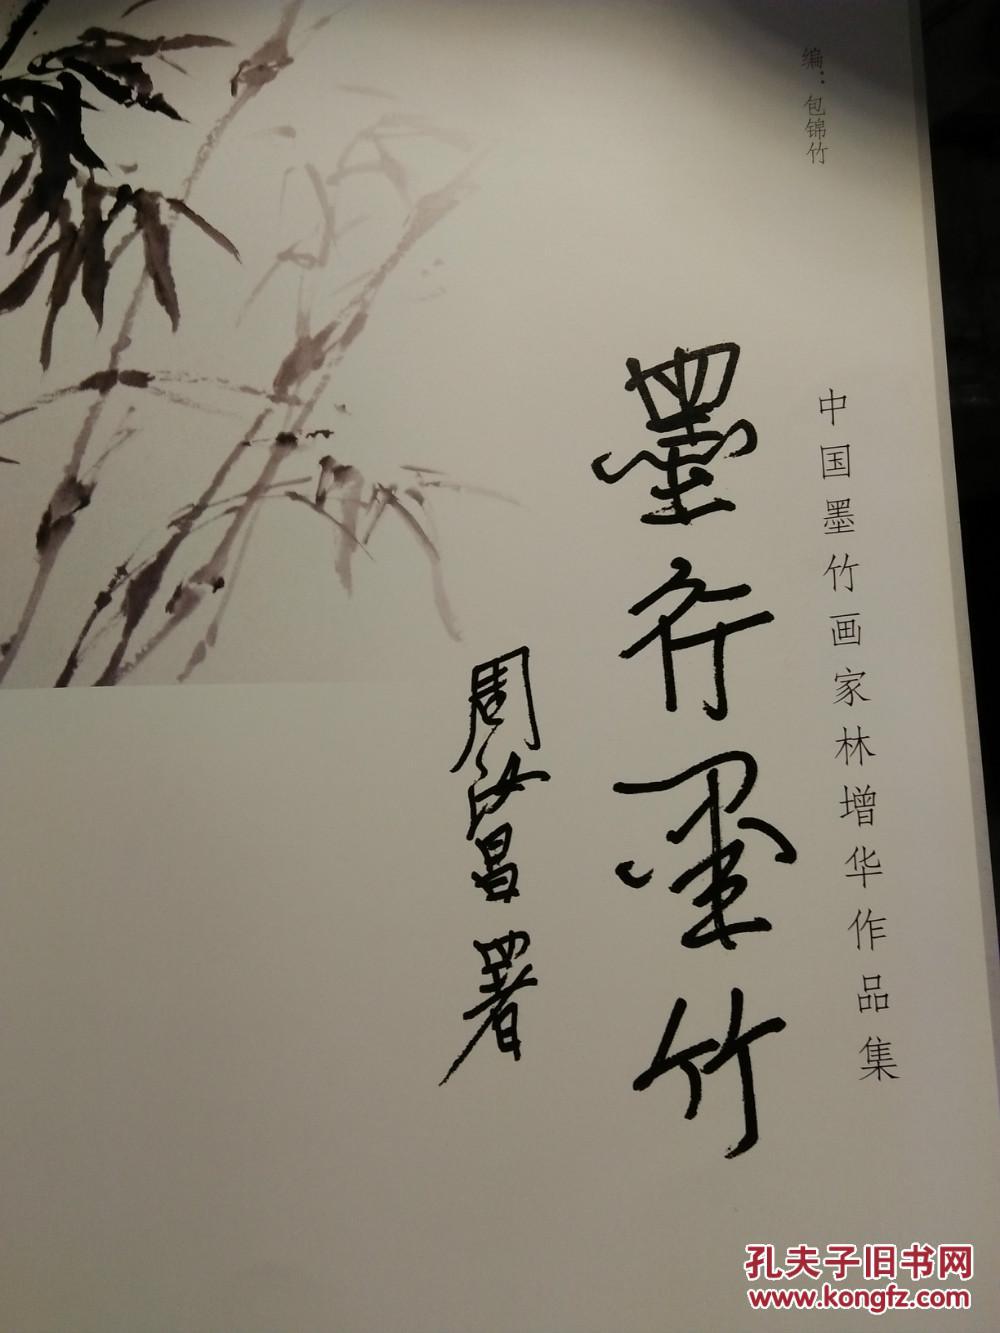 编：包锦竹
中国墨竹画家林增华作品集
墨竹墨竹
周汝昌署
孔夫子旧书网
www.kongfz.com